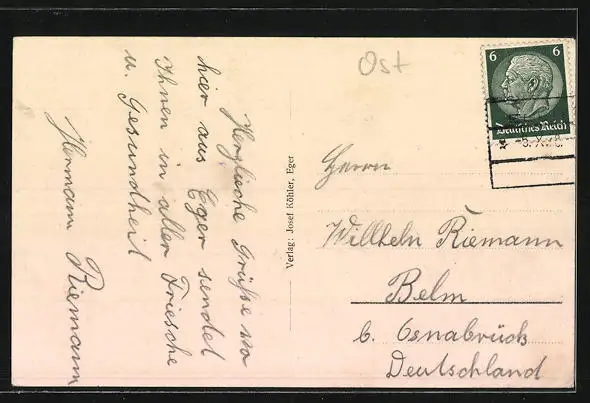 Ost
6 6
Deutsches Reich
Herzliche Grüße von
hier aus Eger sendet
Ihnen in aller Friesche
u. Gesundheit
Hermann Riemann
Verlag: Josef Köhler, Eger
Herrn
Willheln Riemann
Belm
b. Osnabrück
Deutschland